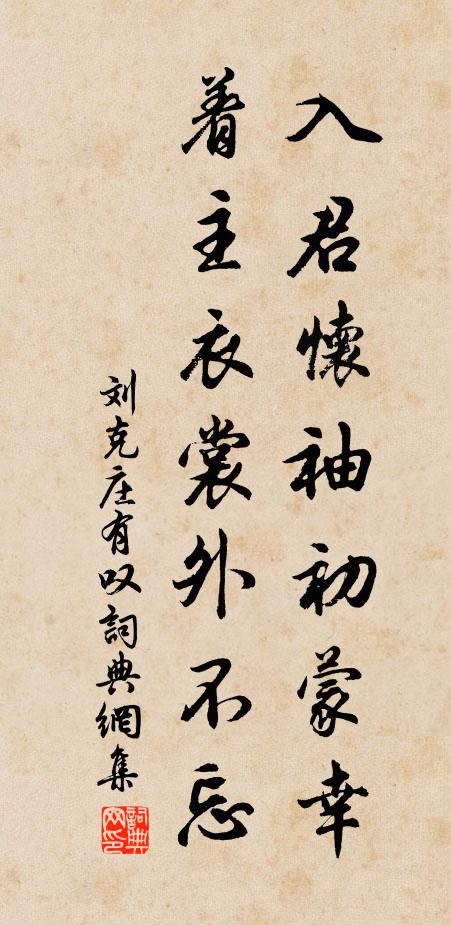 入君懷袖初蒙幸
着主衣裳外不忘
刘克庄有叹詞典網集
詞典網印